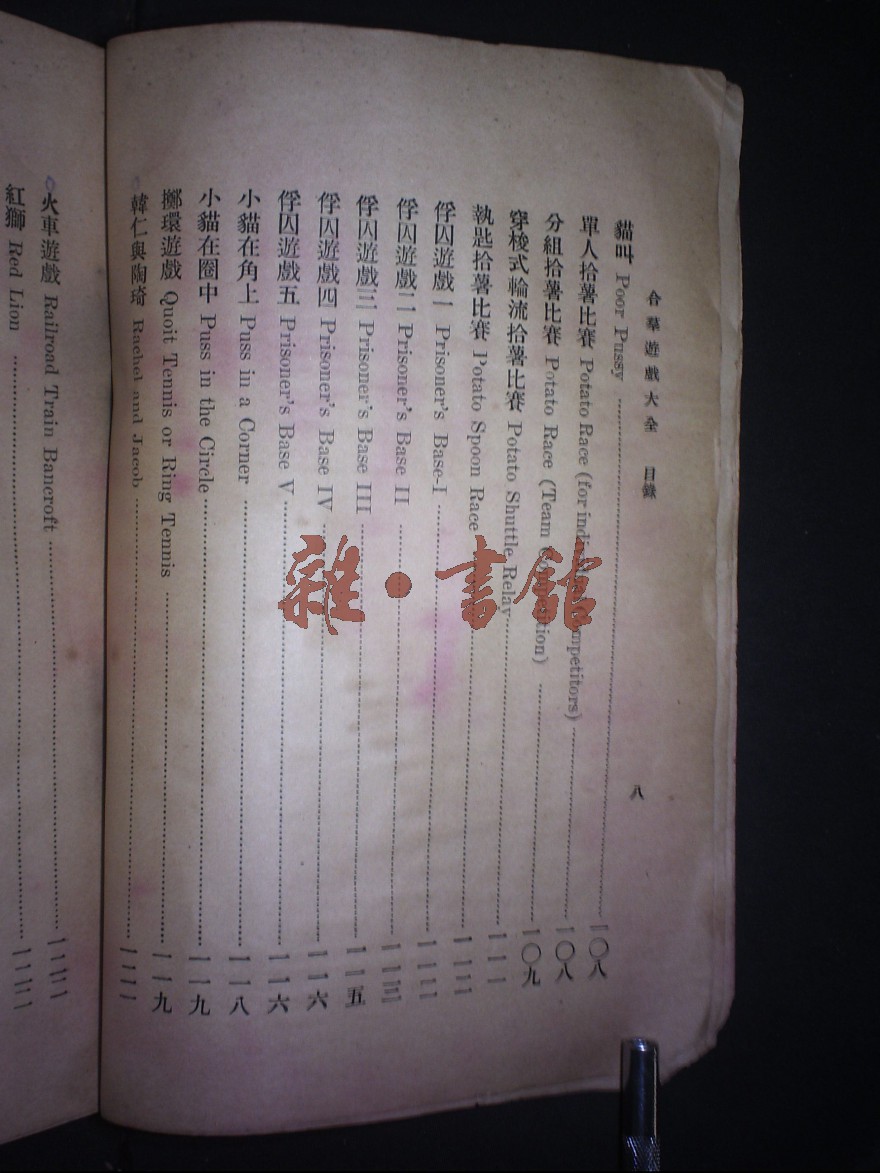 合羣遊戲大全 目錄 八
貓叫 Poor Pussy 一〇八
單人拾薯比賽 Potato Race (for individual competitors) 一〇八
分組拾薯比賽 Potato Race (Team Competition) 一〇九
穿梭式輪流拾薯比賽 Potato Shuttle Relay 一一一
執匙拾薯比賽 Potato Spoon Race
俘囚遊戲一 Prisoner's Base-I
俘囚遊戲二 Prisoner's Base II 一一三
俘囚遊戲三 Prisoner's Base III 一一五
俘囚遊戲四 Prisoner's Base IV 一一六
俘囚遊戲五 Prisoner's Base V 一一六
小貓在角上 Puss in a Corner 一一八
小貓在圈中 Puss in the Circle 一一九
擲環遊戲 Quoit Tennis or Ring Tennis 一一九
韓仁與陶琦 Rachel and Jacob
火車遊戲 Railroad Train Bancroft
紅獅 Red Lion
雜·書館